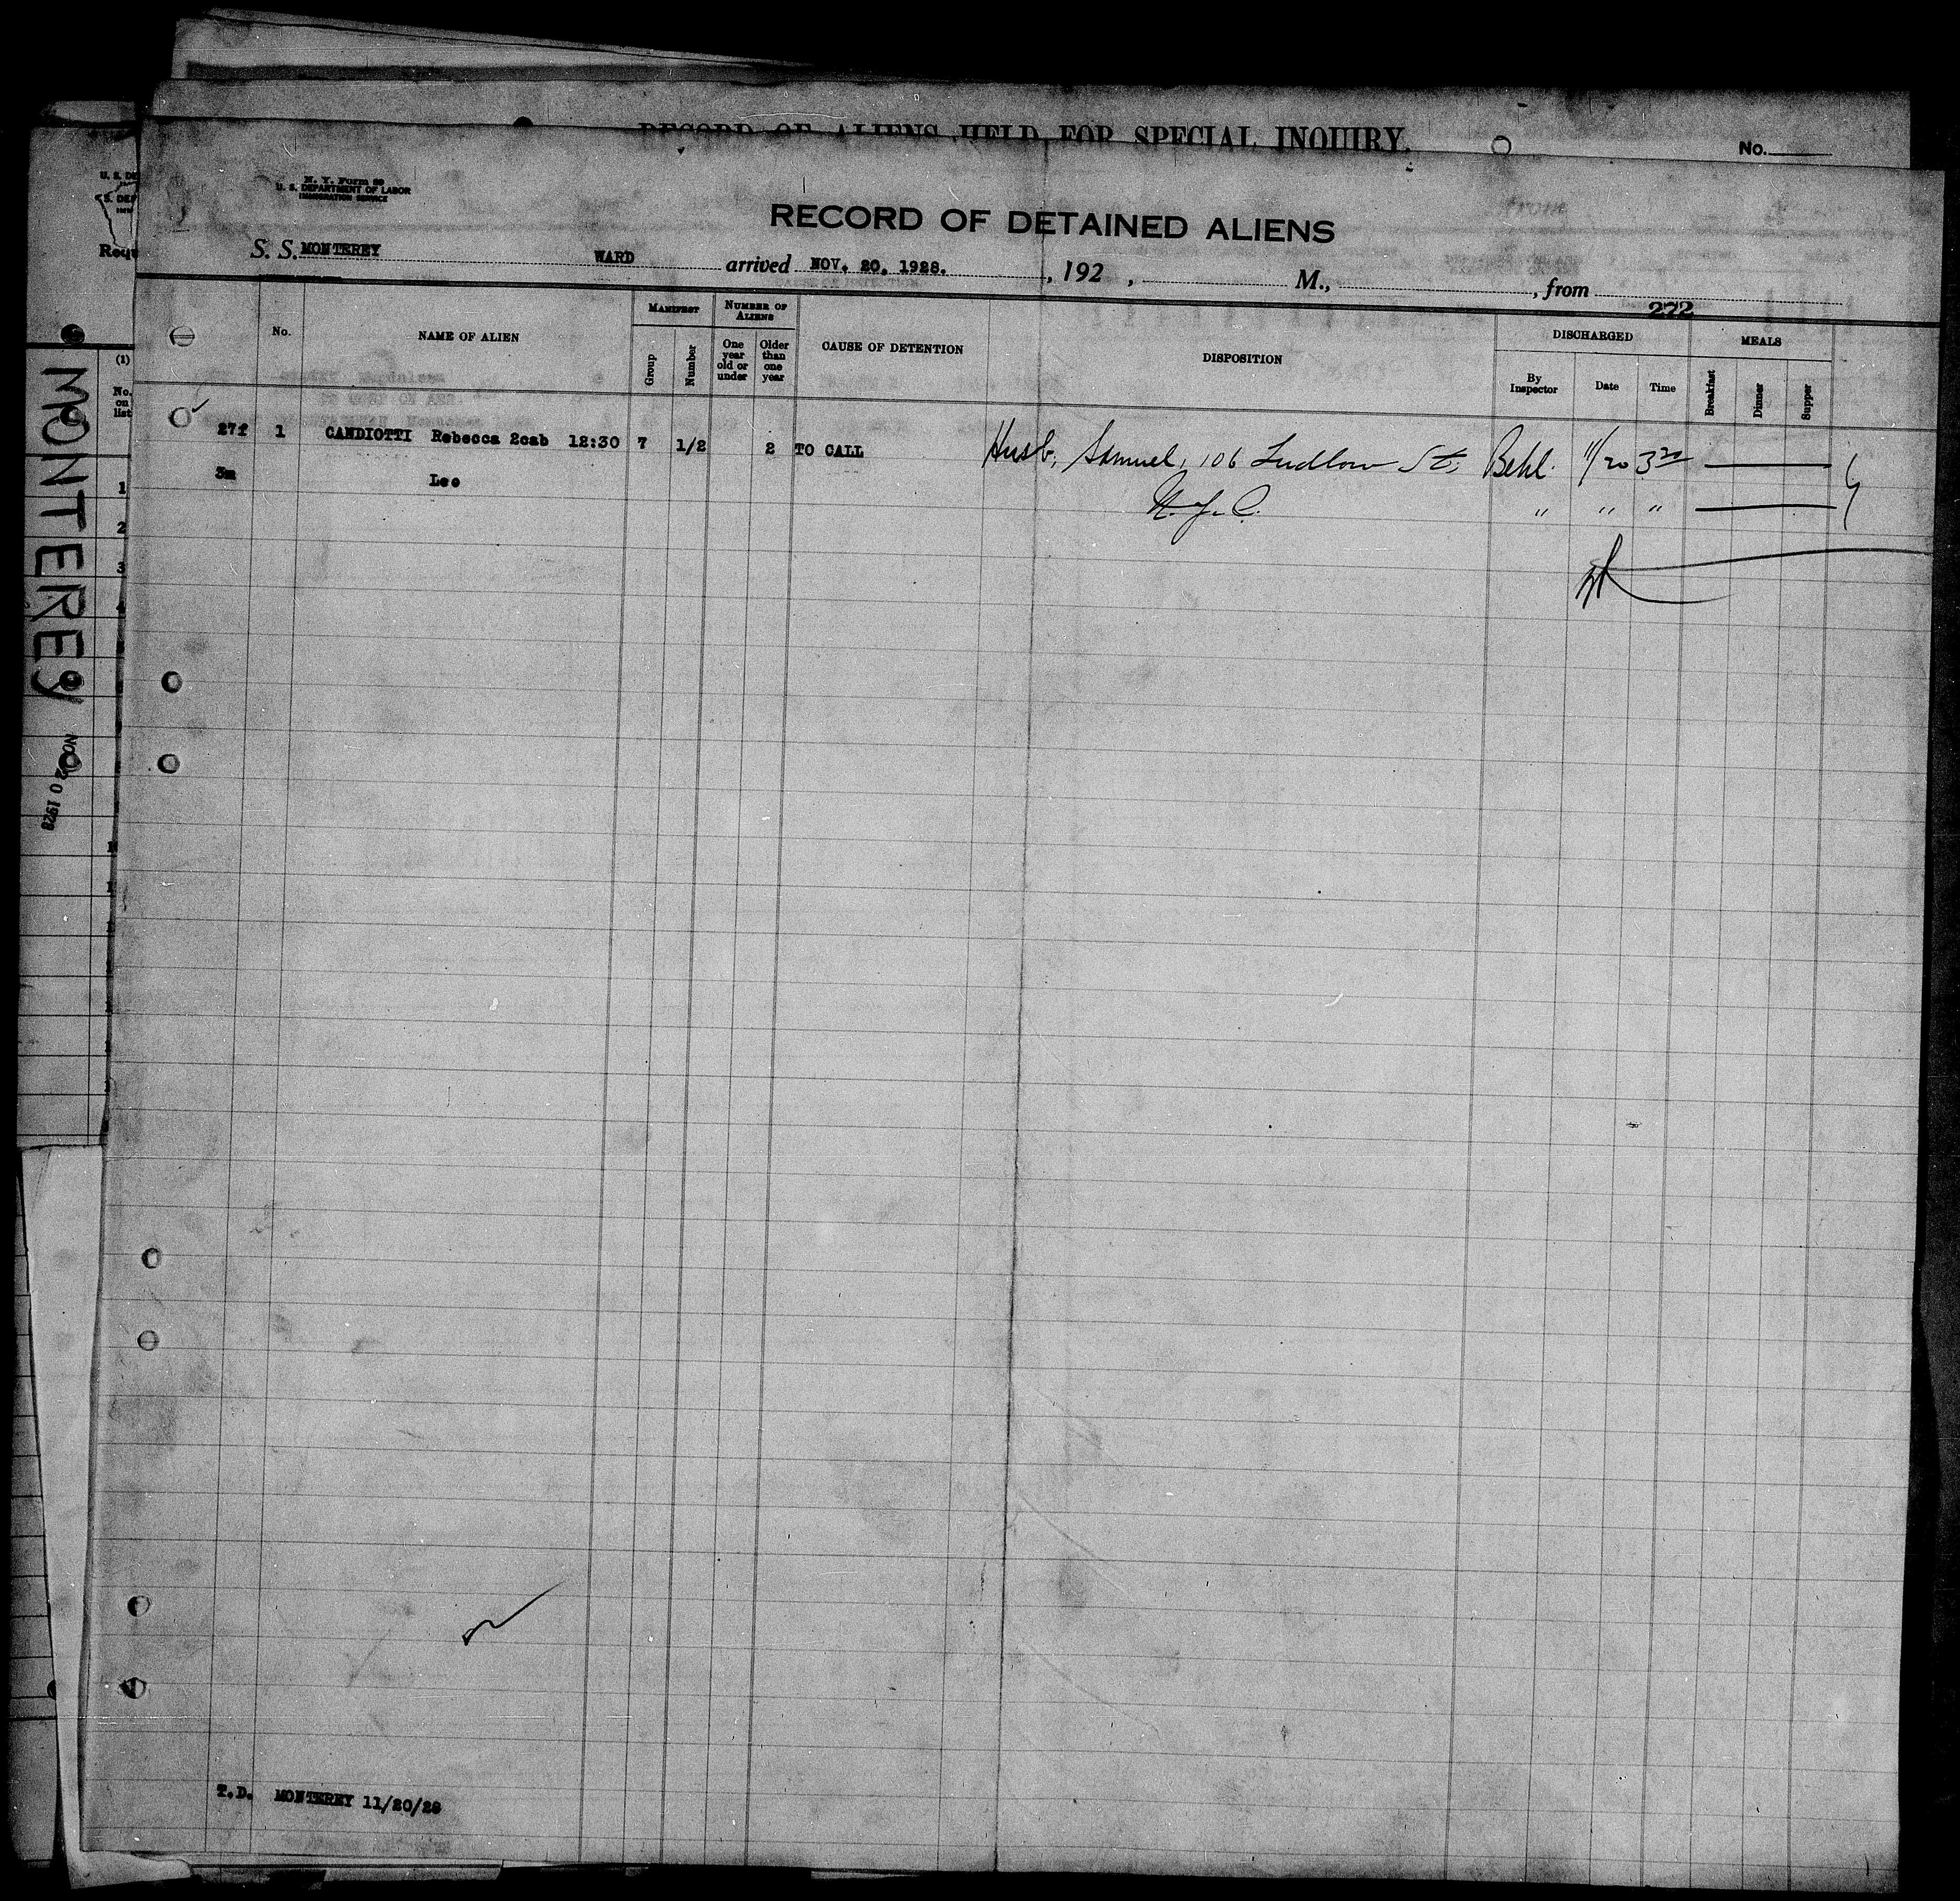 RECORD OF ALIENS HELD FOR SPECIAL INQUIRY.
No.
N. Y. Form 99
U. S. DEPARTMENT OF LABOR
IMMIGRATION SERVICE
RECORD OF DETAINED ALIENS
S. S. MONTEREY WARD arrived NOV. 20, 1928. , 192 , M., , from
272
No. NAME OF ALIEN MANIFEST Group Number NUMBER OF ALIENS One year old or under Older than one year CAUSE OF DETENTION DISPOSITION DISCHARGED By Inspector Date Time MEALS Breakfast Dinner Supper
27f 1 CANDIOTTI Rebecca 2cab 12:30 7 1/2 2 TO CALL Husb, Samuel, 106 Ludlow St. Behl. 11/20 3 20
3m Leo N. Y. C. " " "
T.D. MONTEREY 11/20/28
U. S. DE
S. DEP
Requ
(1)
No. on list
1
2
3
4
MONTEREY
NOV 20 1928